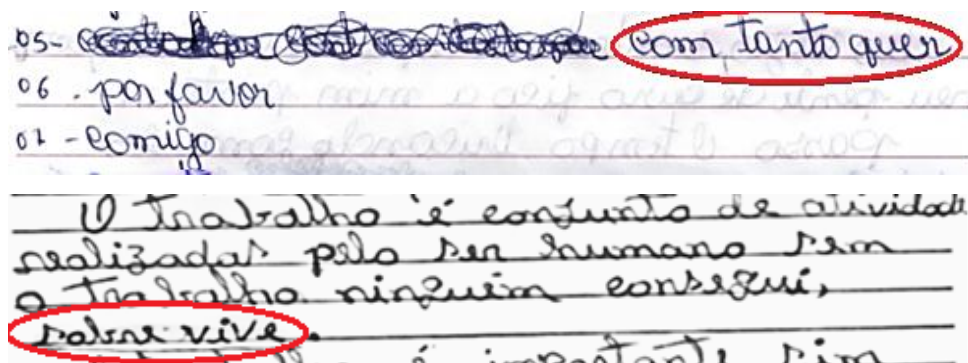 05- com, tanto quer
06. por favor
07 - comigo
O Trabalho é conjunto de atividade
realizadas pelo ser humano sem
o Trabalho ninguém conseguí,
sobre vive.
é importante sim